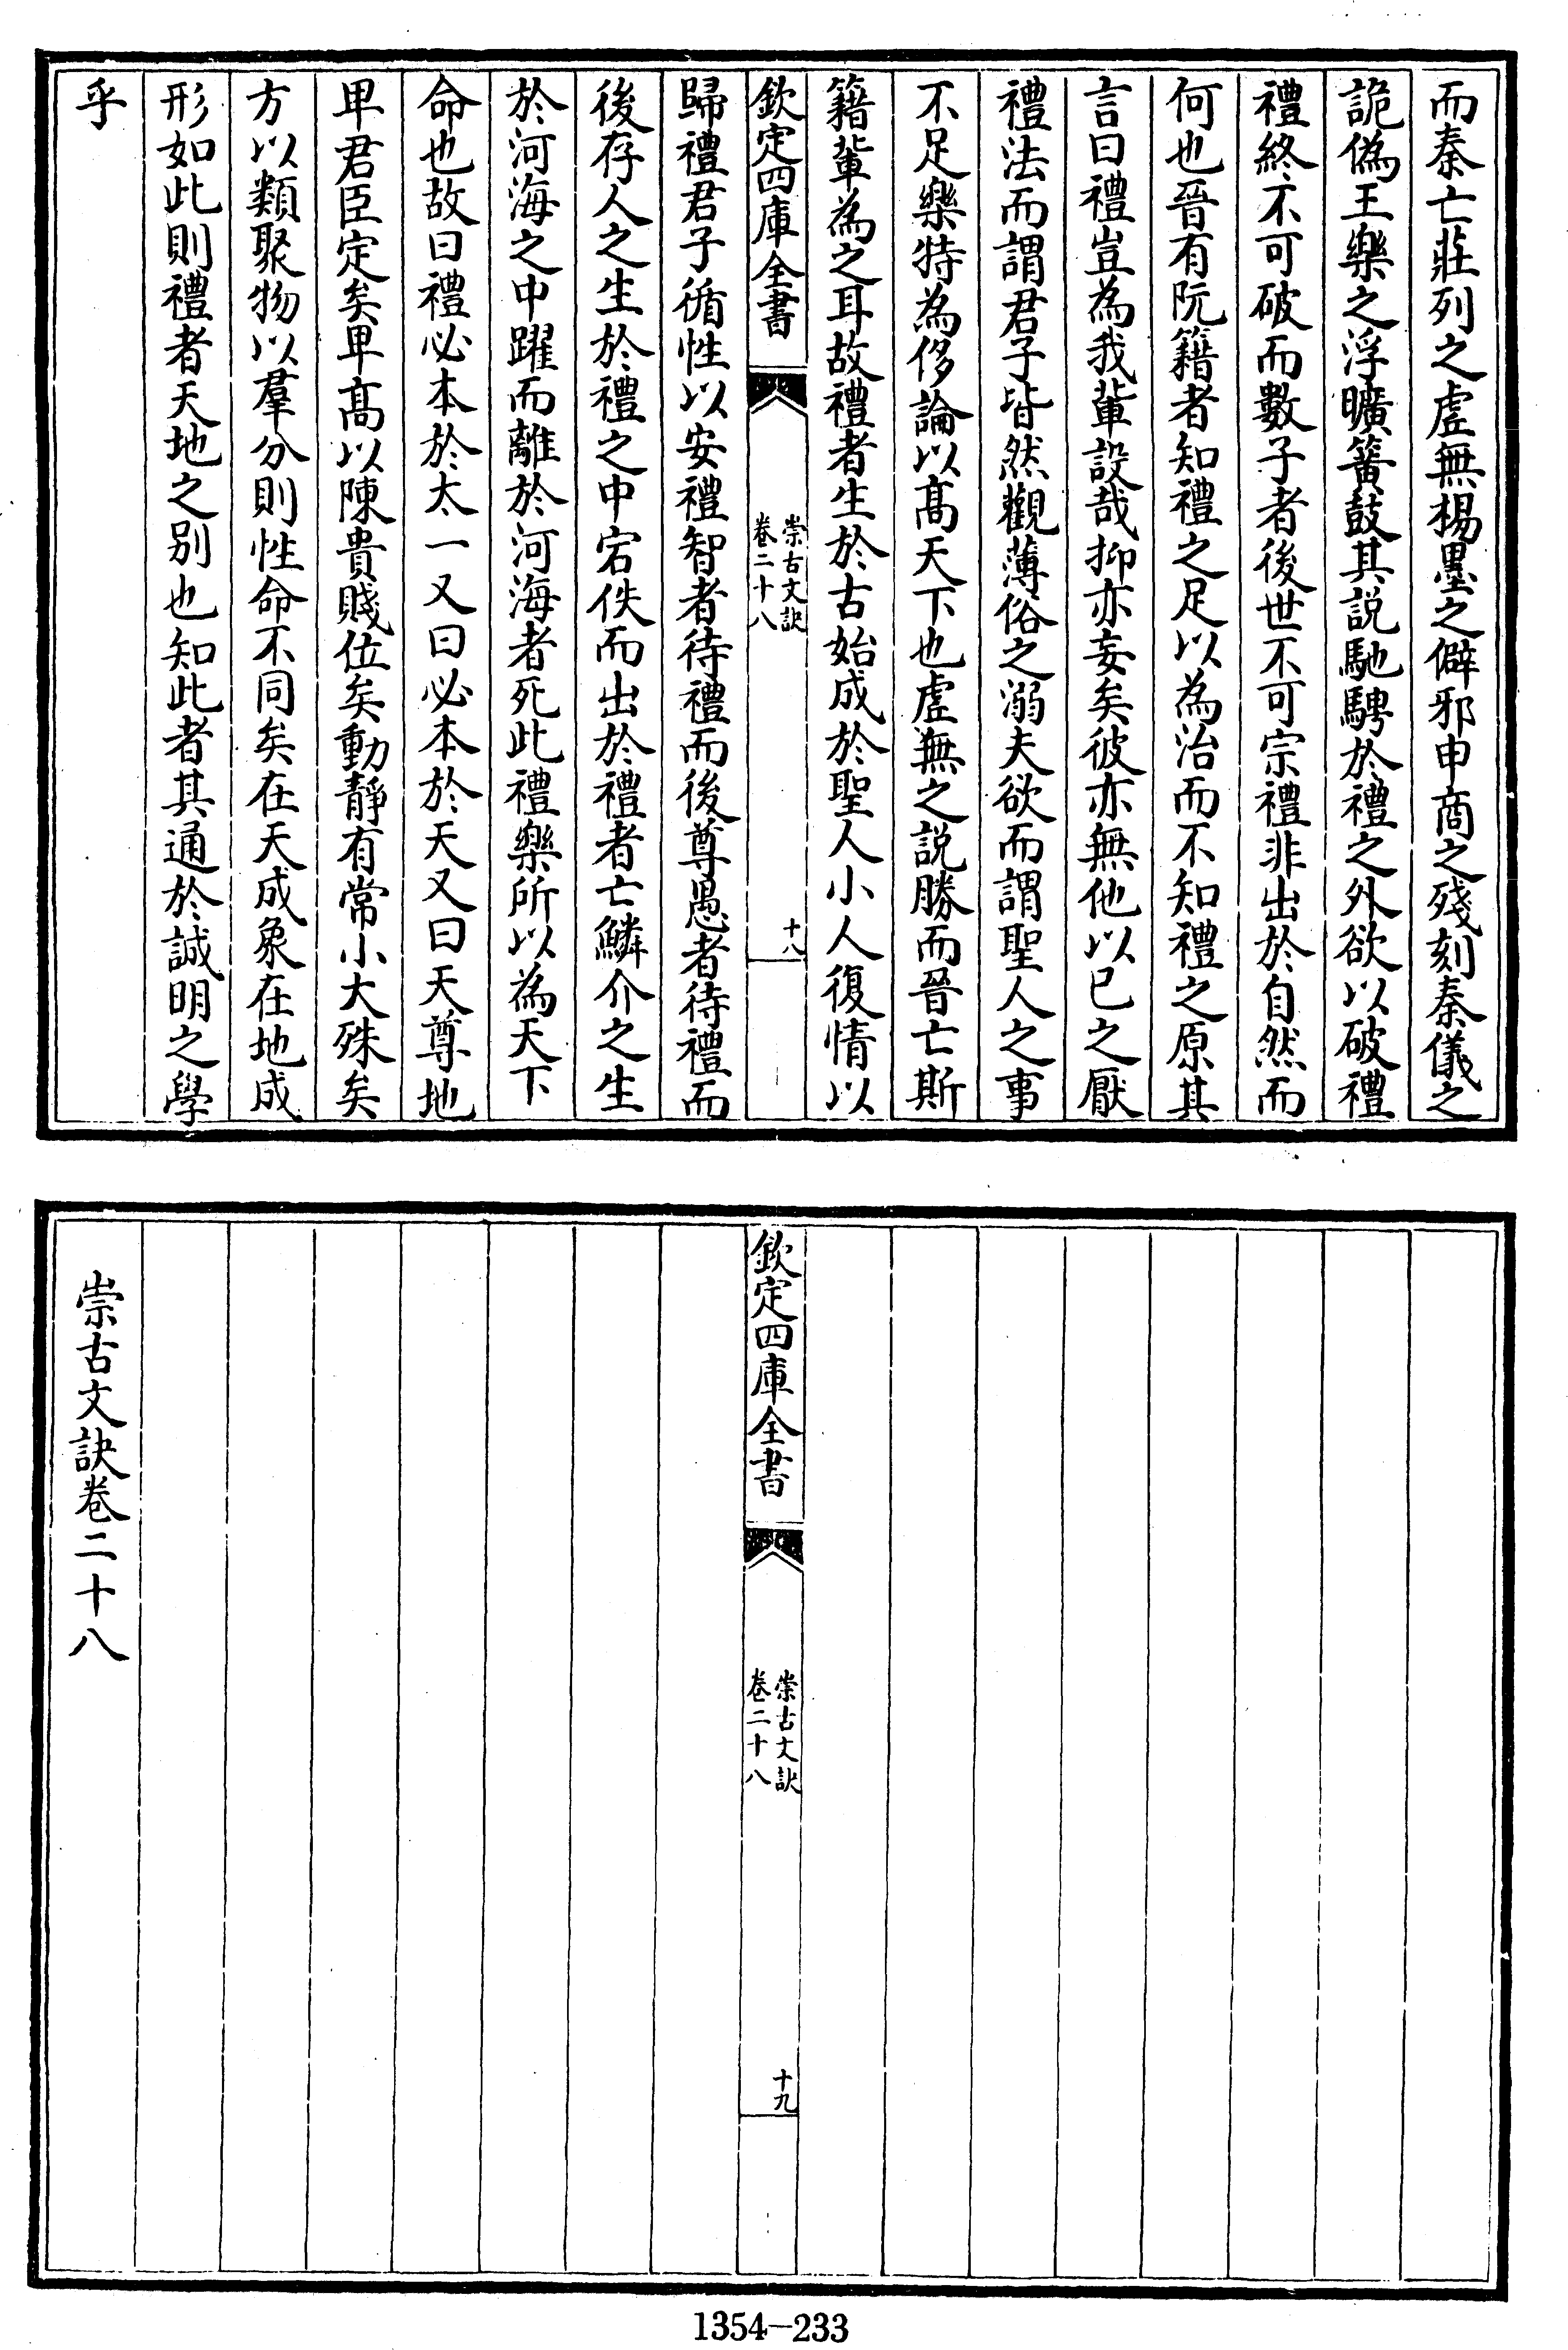 而秦亡莊列之虛無楊墨之僻邪申商之殘刻秦儀之
詭偽王樂之浮曠簧鼓其説馳騁於禮之外欲以破禮
禮終不可破而數子者後世不可宗禮非出於自然而
何也晉有阮籍者知禮之足以為治而不知禮之原其
言曰禮豈為我輩設哉抑亦妄矣彼亦無他以已之厭
禮法而謂君子皆然觀薄俗之溺夫欲而謂聖人之事
不足樂特為侈論以髙天下也虛無之説勝而晉亡斯
籍輩為之耳故禮者生於古始成於聖人小人復情以
欽定四庫全書
崇古文訣
卷二十八
十八
歸禮君子循性以安禮智者待禮而後尊愚者待禮而
後存人之生於禮之中宕佚而出於禮者亡鱗介之生
於河海之中躍而離於河海者死此禮樂所以為天下
命也故曰禮必本於太一又曰必本於天又曰天尊地
卑君臣定矣卑髙以陳貴賤位矣動靜有常小大殊矣
方以類聚物以羣分則性命不同矣在天成象在地成
形如此則禮者天地之别也知此者其通於誠明之學
乎
欽定四庫全書
崇古文訣
卷二十八
十九
崇古文訣卷二十八
1354-233